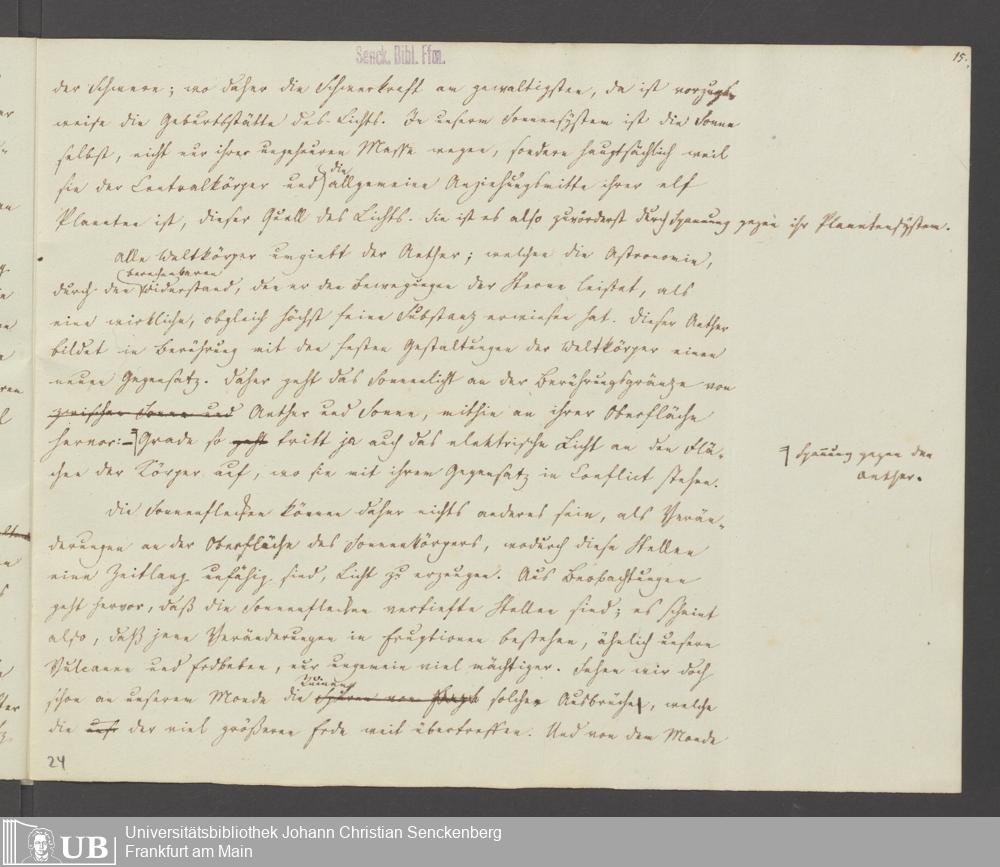 Senck. Bibl. Ffm.
15.
der Schwere; wo daher die Schwerkraft am gewaltigsten, da ist vorzugs-
weise die Geburtsstätte des Lichts. In unserm Sonnensystem ist die Sonne
selbst, nicht nur ihrer ungeheuren Masse wegen, sondern hauptsächlich weil
die
sie der Centralkörper und allgemeine Anziehungsmitte ihrer elf
Planeten ist, dieser Quell des Lichts. Sie ist es also zuvörderst durch Spannung gegen ihr Planetensystem.
Alle Weltkörper umgiebt der Aether; welchen die Astronomie,
berechenbaren
durch den Widerstand, den er den Bewegungen der Sterne leistet, als
eine wirkliche, obgleich höchst feine Substanz erwiesen hat. Dieser Aether
bildet in Berührung mit den festen Gestaltungen der Weltkörper einen
neuen Gegensatz. Daher geht das Sonnenlicht an der Berührungsgränze von
zwischen Sonne und Aether und Sonne, mithin an ihrer Oberfläche
hervor: Grade so geht tritt ja auch das elektrische Licht an den Flä-
Spannung gegen den
Aether.
chen der Körper auf, wo sie mit ihrem Gegensatz in Conflict stehen.
Die Sonnenflecken können daher nichts anderes sein, als Verän-
derungen an der Oberfläche des Sonnenkörpers, wodurch diese Stellen
eine Zeitlang unfähig sind, Licht zu erzeugen. Aus Beobachtungen
geht hervor, daß die Sonnenflecken vertiefte Stellen sind; es scheint
also, daß jene Veränderungen in Eruptionen bestehen, ähnlich unsern
Vulcanen und Erdbeben, nur ungemein viel mächtiger. Sehen wir doch
schon an unserem Monde die Spuren von solcher Ausbrüche, welche
die der viel größeren Erde weit übertreffen. Und von dem Monde
24
UB
Universitätsbibliothek Johann Christian Senckenberg
Frankfurt am Main